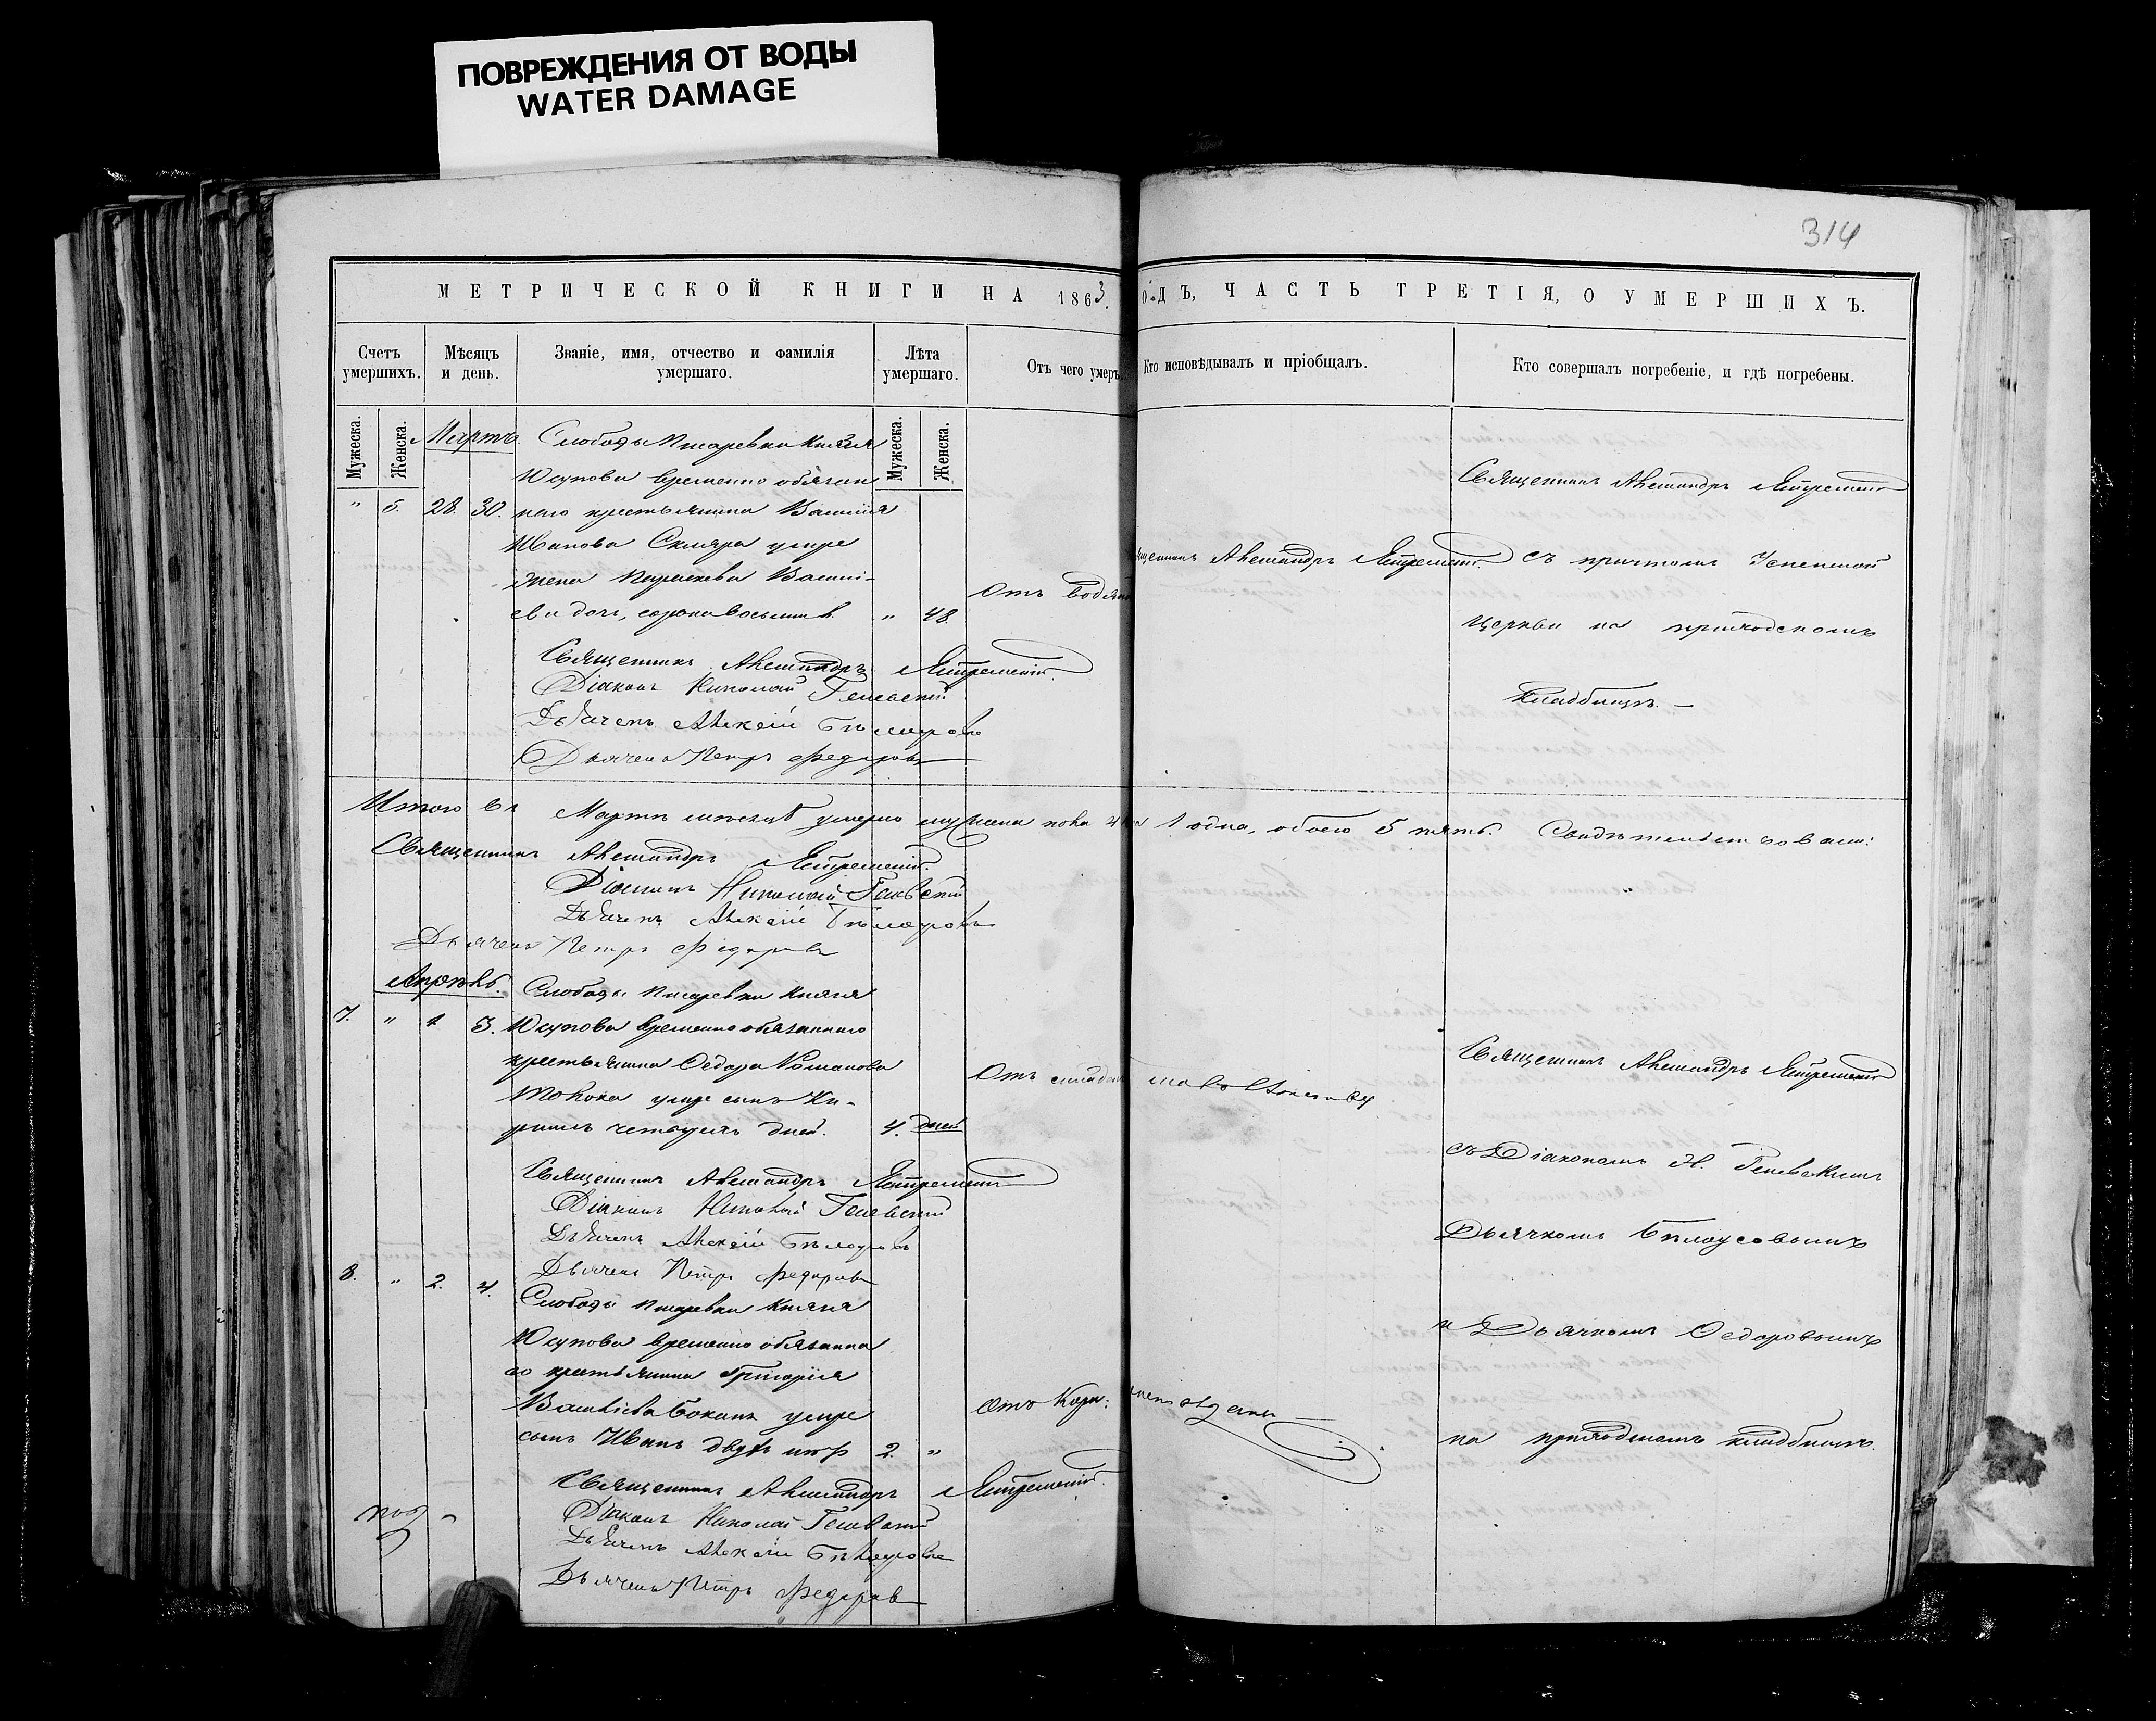 ПОВРЕЖДЕНИЯ ОТ ВОДЫ
WATER DAMAGE
314
МЕТРИЧЕСКОЙ КНИГИ НА 1863. ОДЪ, ЧАСТЬ ТРЕТІЯ, О УМЕРШИХЪ.
Счетъ умершихъ.
Мѣсяцъ и день.
Званіе, имя, отчество и фамилія умершаго.
Лѣта умершаго.
Отъ чего умеръ
Кто исповѣдывалъ и пріобщалъ.
Кто совершалъ погребеніе, и гдѣ погребены.
Мужеска.
Женска.
Мужеска.
Женска.
Мартъ
" 5. 28. 30.
Слободы Писаревки Князя
Юсупова временно обязан
наго крестьянина Василія
Иванова Скляра умре
жена Параскева Василі-
ева дочь, сорока восьми л.
" 48.
Отъ водян
Священникъ Александръ
щенникъ Александръ
съ причтомъ Успенской
церкви на приходскомъ
кладбищѣ. —
Священникъ Александръ
Діаконъ Николай
Дьячекъ Алексій Бѣлоусовъ
Дьячекъ Петръ Федоровъ
Итого въ Мартѣ месяцѣ умерло мужеска пола 4 1 одна, обоего 5 пять. Свидѣтельствовали:
Священникъ Александръ
Діаконъ Николай
Дьячекъ Алексій Бѣлоусовъ
Дьячекъ Петръ Федоровъ
Апрѣль.
7. " 1 3.
Слободы Писаревки Князя
Юсупова временно обязаннаго
крестьянина Ѳедора Романова
умре сынъ Ки-
рилъ четырехъ дней.
4. дней
Отъ
Священникъ Александръ
съ Діакономъ Н.
Дьячкомъ Бѣлоусовымъ
и Дьячкомъ Ѳедоровымъ
на приходскомъ кладбищѣ.
Священникъ Александръ
Діаконъ Николай
Дьячекъ Алексій Бѣлоусовъ
Дьячекъ Петръ Федоровъ
8. " 2. 4.
Слободы Писаревки Князя
Юсупова временно обязанна
го крестьянина Григорія
Васильева умре
сынъ Иванъ двухъ
2. "
Отъ Кори:
Священникъ Александръ
Діаконъ Николай
Дьячекъ Алексій Бѣлоусовъ
Дьячекъ Петръ Федоровъ